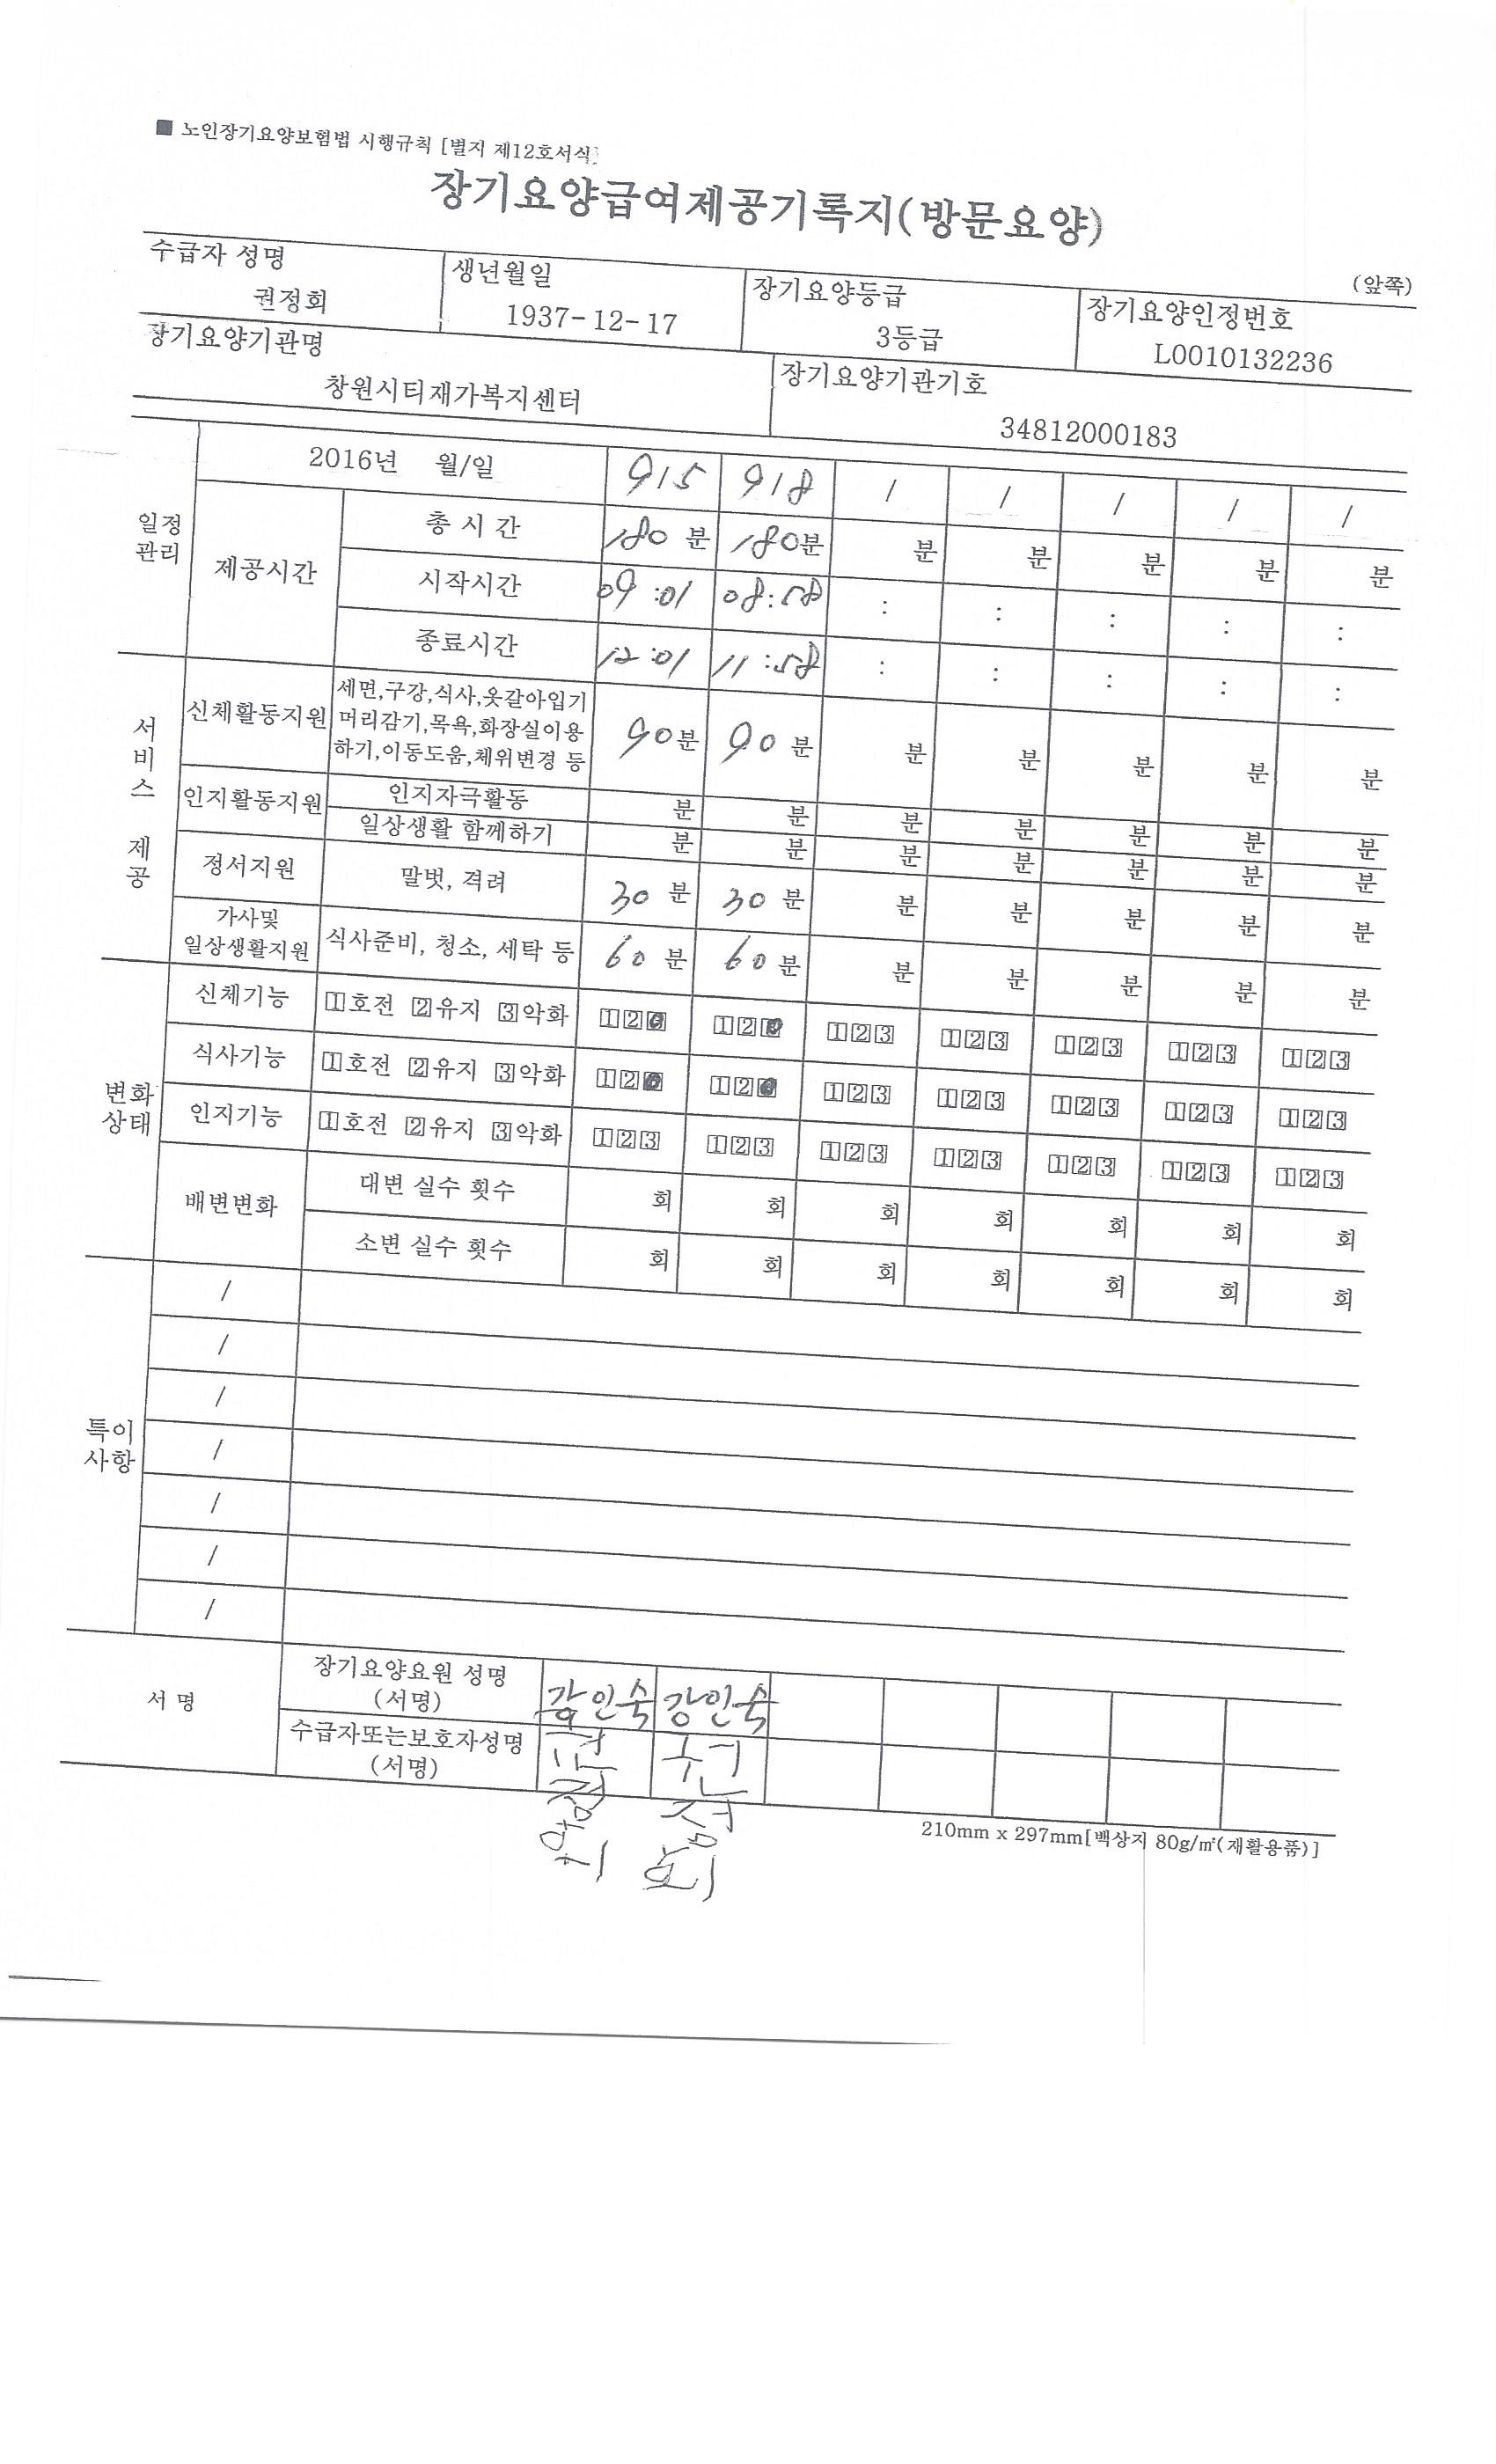 ■ 노인장기요양보험법 시행규칙 [별지 제12호서식]
장기요양급여제공기록지(방문요양)
(앞쪽)
수급자 성명 생년월일 장기요양등급 장기요양인정번호
권정회 1937-12-17 3등급 L0010132236
장기요양기관명 장기요양기관기호
창원시티재가복지센터 34812000183
일정관리
2016년 월/일 9/5 9/8 / / / / /
제공시간
총 시 간 180 분 180분 분 분 분 분 분
시작시간 09:01 08:58 : : : : :
종료시간 12:01 11:58 : : : : :
서비스 제공
신체활동지원
세면,구강,식사,옷갈아입기
머리감기,목욕,화장실이용
하기,이동도움,체위변경 등
90분 90 분 분 분 분 분 분
인지활동지원
인지자극활동 분 분 분 분 분 분 분
일상생활 함께하기 분 분 분 분 분 분 분
정서지원 말벗, 격려 30 분 30 분 분 분 분 분 분
가사및
일상생활지원 식사준비, 청소, 세탁 등 60 분 60 분 분 분 분 분 분
변화상태
신체기능 1호전 2유지 3악화 123 123 123 123 123 123 123
식사기능 1호전 2유지 3악화 123 123 123 123 123 123 123
인지기능 1호전 2유지 3악화 123 123 123 123 123 123 123
배변변화
대변 실수 횟수 회 회 회 회 회 회 회
소변 실수 횟수 회 회 회 회 회 회 회
특이사항
/
/
/
/
/
/
/
서 명
장기요양요원 성명
(서명)
강인숙 강인숙
수급자또는보호자성명
(서명)
권정회
210mm x 297mm[백상지 80g/㎡(재활용품)]